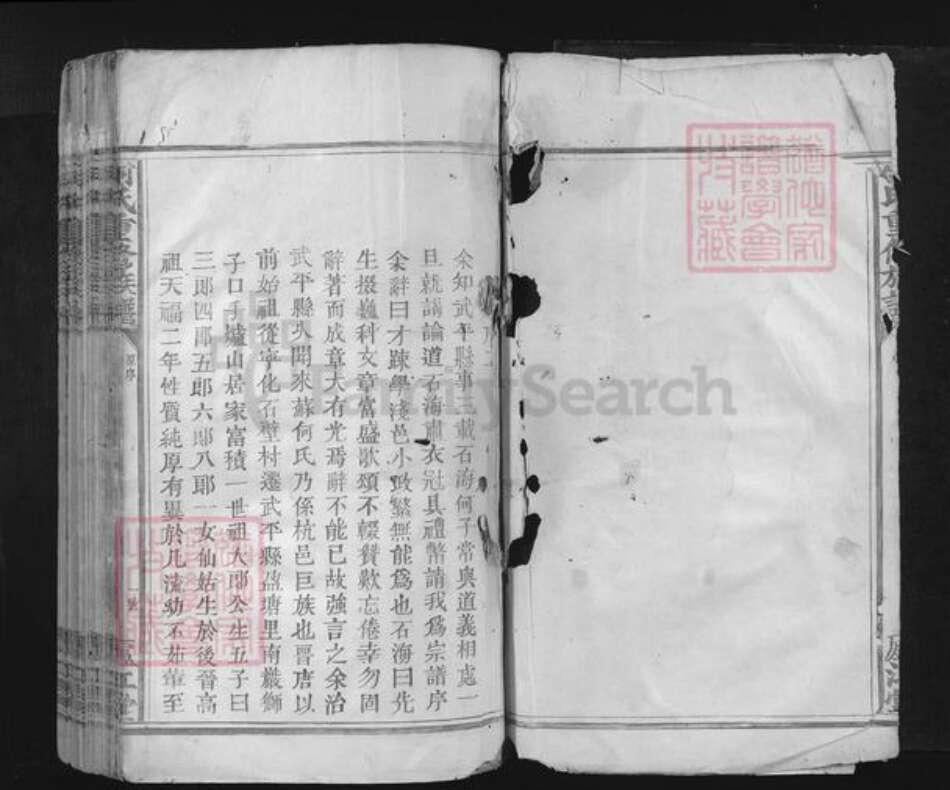 余知武平縣事三載石海何子常與道義相處一
旦就謁論道石海肅衣冠具禮幣請我為宗譜序
余辭曰才踈學淺邑小政繁無能為也石海曰先
生掇巍科文章富盛歌頌不輟贊歎忘倦幸勿固
辭著而成章大有光焉辭不能已故強言之余治
武平縣久聞來蘇何氏乃係杭邑巨族也晋唐以
前始祖從寧化石壁村遷武平縣盈塘里南巖獅
子口手爐山居家富積一世祖大郎公生五子曰
三郎四郎五郎六郎八郎一女仙姑生於後晉高
祖天福二年性質純厚有異於凡流幼不茹葷至
何氏重修族譜
原序
廬江堂
FamilySearch